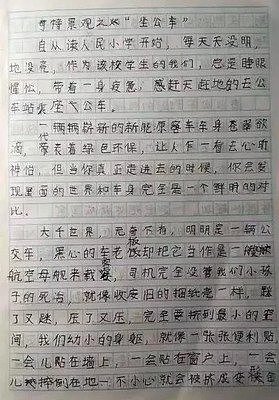 奇特景观之从"坐公车"
自从读人民小学开始，每天天没明，
地没亮，作为该校学生的我们，总是睡眼
惺忪，带着一身疲惫，感赶天赶地的去公
车站装座公车。
辆辆崭新的新能源客车车身苍翠欲
滴，代表着绿色环保，让人乍一看去心旷
神怡，但当你真正走进去的时候，你会发
现里面的世界和车身完全是一个鲜明的对
比。
大千世界，无奇不有，明明是一辆公
交车，黑心的车老板却把它当作是一艘
航空母舰来载客，司机完全没管我们小孩
子的死活，就像收废旧的捆纸壳一样，踩
了又踩，压了又压，完全要挤到最小的空
间，我们幼小的身躯，就像一张张便利贴，
一会儿贴在墙上，一会儿贴在窗户上，一会
儿摔倒在地，一不小心就会被挤成变